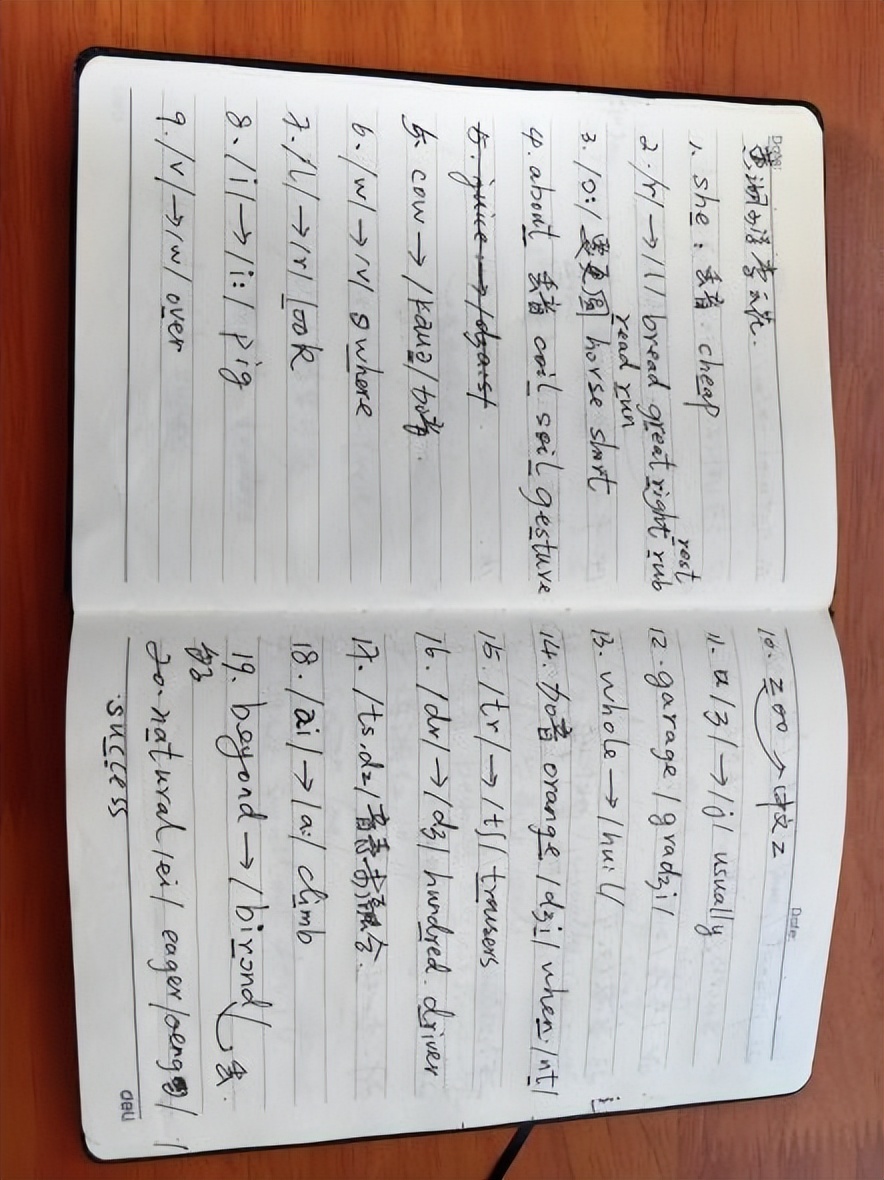 Date:
1. she: 丢音. cheap
2. /r/ → /l/ bread great right rub
read run rest
3. /ɔ:/ 要更圆 horse short
4. about 丢音 coil soil gesture
5. cow → /kauə/ 加音.
6. /w/ → /v/ where
7. /l/ → /r/ look
8. /i/ → /i:/ pig
9. /v/ → /w/ over
Date:
10. zoo → 中文 z
11. /ʒ/ → /j/ usually
12. garage /gradʒi/
13. whole → /huil/
14. 加音 orange /dʒi/ when /nt/
15. /tr/ → /tʃ/ trousers
16. /dr/ → /dʒ/ hundred driver
17. /ts, dz/ 音素融合.
18. /ai/ → /a:/ climb
19. beyond → /birɔnd/ 丢.
20. natural /ei/ eager
success
deli